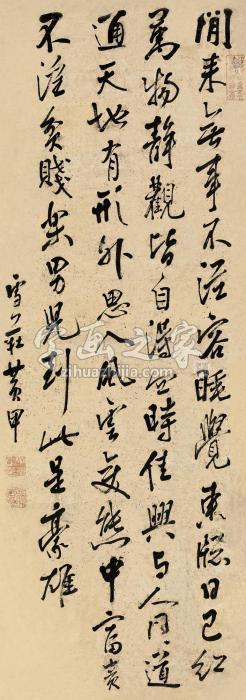 閒来無事不從容睡覺東牕日已紅
萬物靜觀皆自得四時佳興与人同道
通天地有形外思入風雲变態中富貴
不淫貧賤樂男児到此是豪雄
雪 莊黄甲
字画之家
zihuazhijia.com